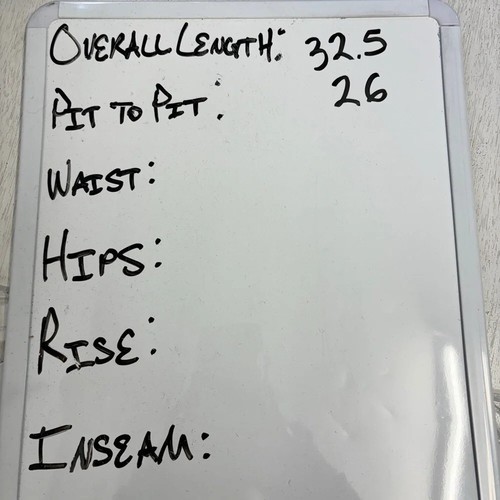 OVERALL LENGTH: 32.5
PIT TO PIT: 26
WAIST:
HIPS:
RISE:
INSEAM: